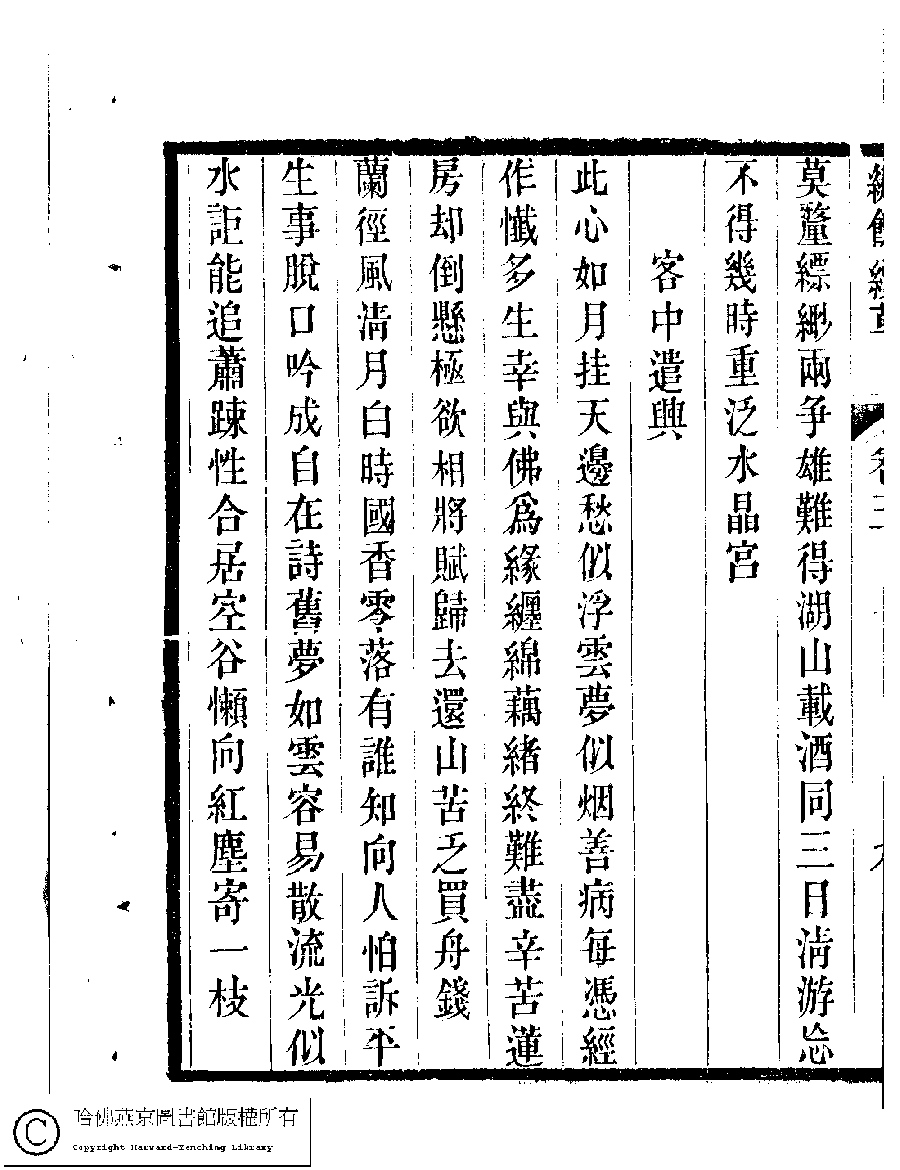 莫釐縹緲兩爭雄難得湖山載酒同三日淸游忘
不得幾時重泛水晶宮
客中遣興
此心如月挂天邊愁似浮雲夢似烟善病每憑經
作懺多生幸與佛爲緣纏綿藕緖終難盡辛苦蓮
房却倒懸極欲相將賦歸去還山苦乏買舟錢
蘭徑風淸月白時國香零落有誰知向人怕訴平
生事脫口吟成自在詩舊夢如雲容易散流光似
水詎能追蕭踈性合居空谷懶向紅塵寄一枝
哈佛燕京圖書館版權所有
Copyright Harvard-Yenching Library